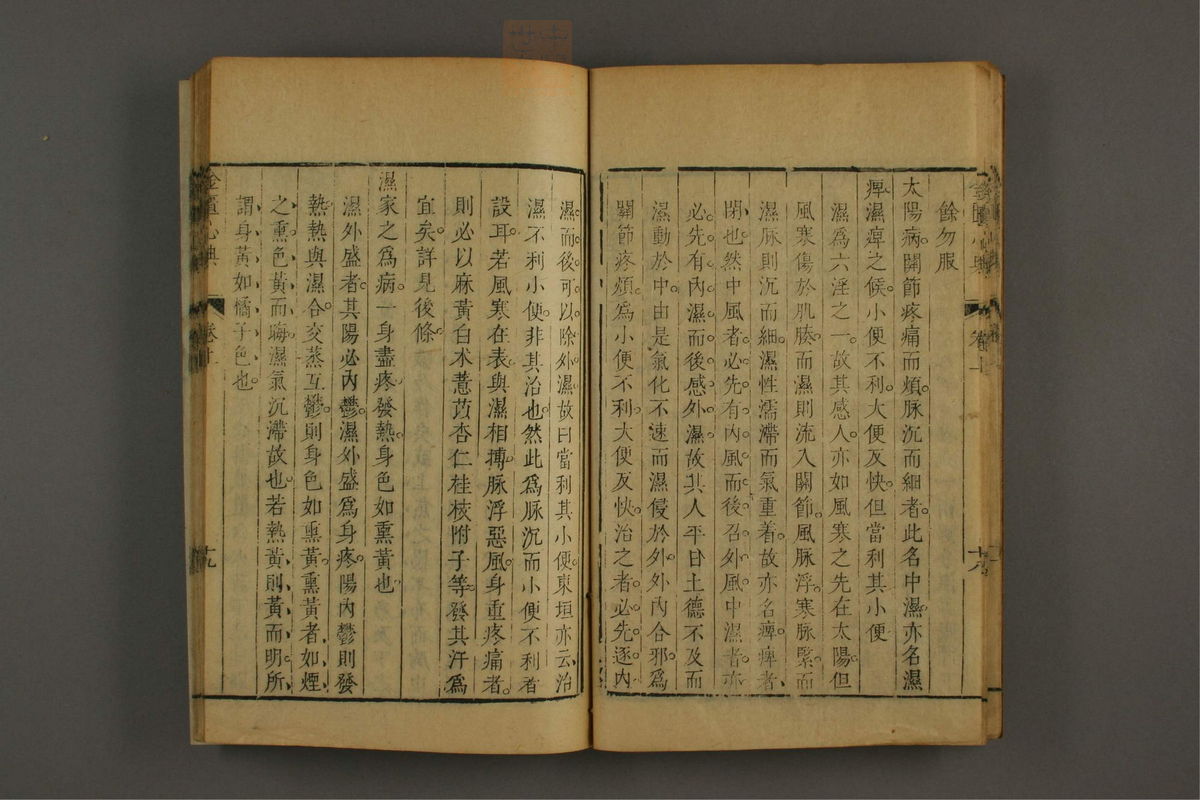 餘勿服
太陽病。關節疼痛而煩。脉沉而細者。此名中濕。亦名濕
痺。濕痺之候。小便不利。大便反快。但當利其小便
濕爲六淫之一。故其感人。亦如風寒之先在太陽。但
風寒傷於肌腠。而濕則流入關節。風脉浮。寒脉緊。而
濕脉則沉而細。濕性濡滯而氣重着。故亦名痺。痺者
閉也。然中風者。必先有內風而後召外風。中濕者。亦
必先有內濕而後感外濕。故其人平日土德不及而
濕動於中。由是氣化不速。而濕侵於外。外內合邪。爲
關節疼煩。爲小便不利。大便反快。治之者。必先逐內
濕。而後可以除外濕。故曰當利其小便。東垣亦云。治
濕不利小便。非其治也。然此爲脉沉而小便不利者
設耳。若風寒在表。與濕相搏。脉浮惡風。身重疼痛者。
則必以麻黃白术薏苡杏仁桂枝附子等。發其汗爲
宜矣。詳見後條。
濕家之爲病。一身盡疼。發熱。身色如熏黃也。
濕外盛者。其陽必內鬱。濕外盛爲身疼。陽內鬱則發
熱。熱與濕合。交蒸互鬱。則身色如熏黃。熏黃者。如煙
之熏。色黃而晦。濕氣沉滯故也。若熱黃則黃而明。所
謂身黃如橘子色也。
金匱心典
卷上
十九